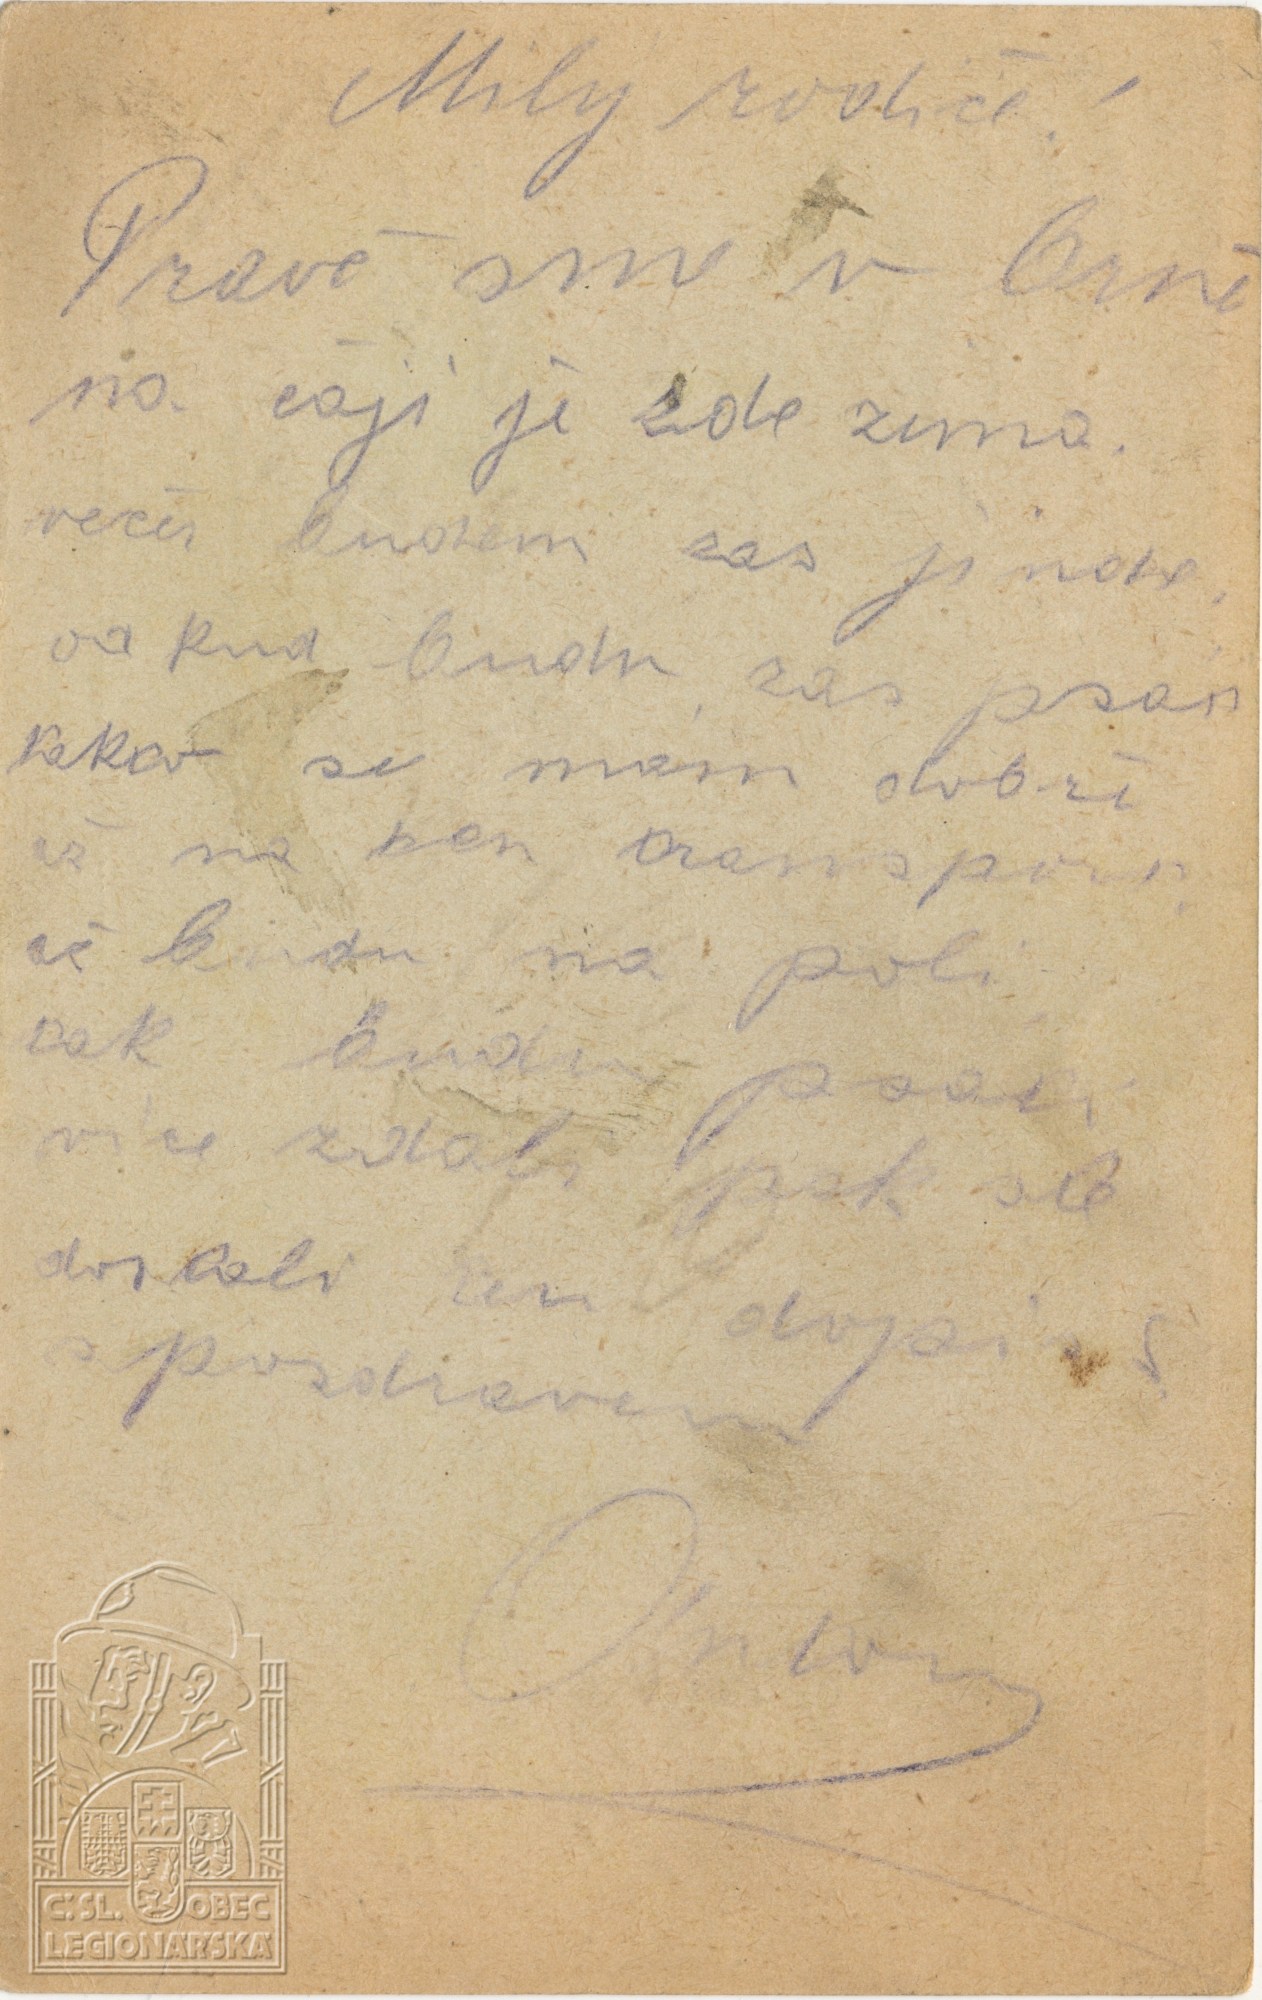 Milý rodiče!
Pravě sme v Brně
na čaji je zde zima.
večer budem zas jinde,
od kud budu zas psát
takto se mám dobře
až na ten transport.
až budu na poli
tak budu psáti
více zdali pak ste
dostali ten dopis
s pozdravem
Anton
Č. SL. OBEC
LEGIONÁŘSKÁ